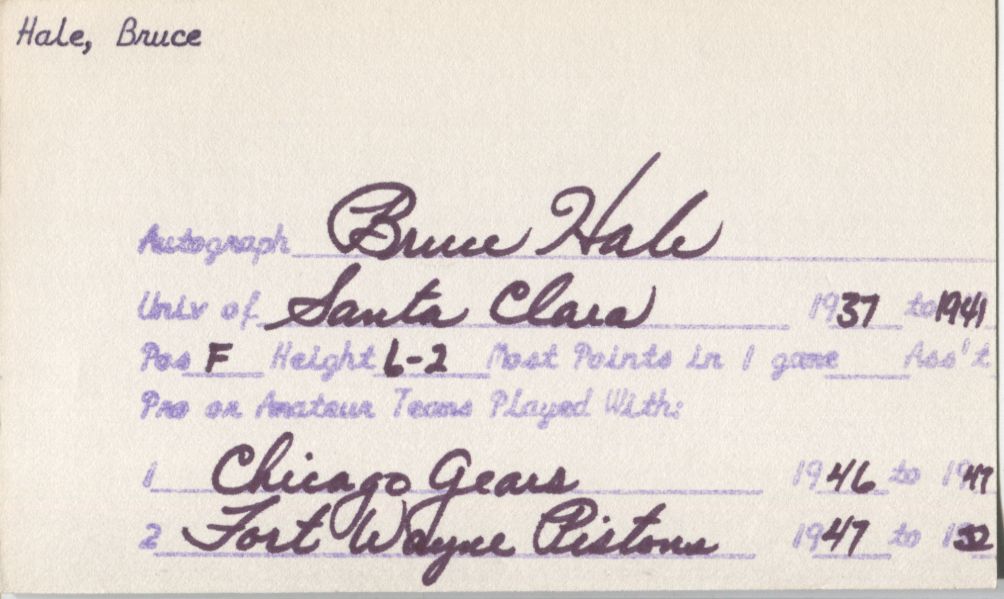 Hale, Bruce
Autograph Bruce Hale
Univ of Santa Clara 1937 to 1941
Pos F Height 6-2 Most Points in 1 game Ass't
Pro or Amateur Teams Played With:
1 Chicago Gears 1946 to 1947
2 Fort Wayne Pistons 1947 to 1952